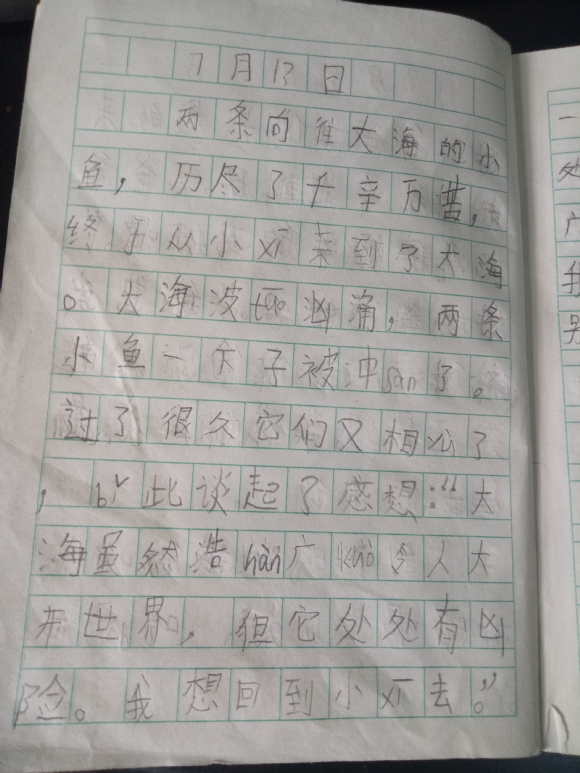 7月13日
两条向往大海的小
鱼，历尽了千辛万苦，
终于从小xī来到了大海
。大海波tāo汹涌，两条
小鱼一下子被冲sàn了。
过了很久它们又相yù了
，bǐ此谈起了感想：“大
海虽然浩hàn广kuò令人大
开世界，但它处处有凶
险。我想回到小xī去。”
一
处
广
我